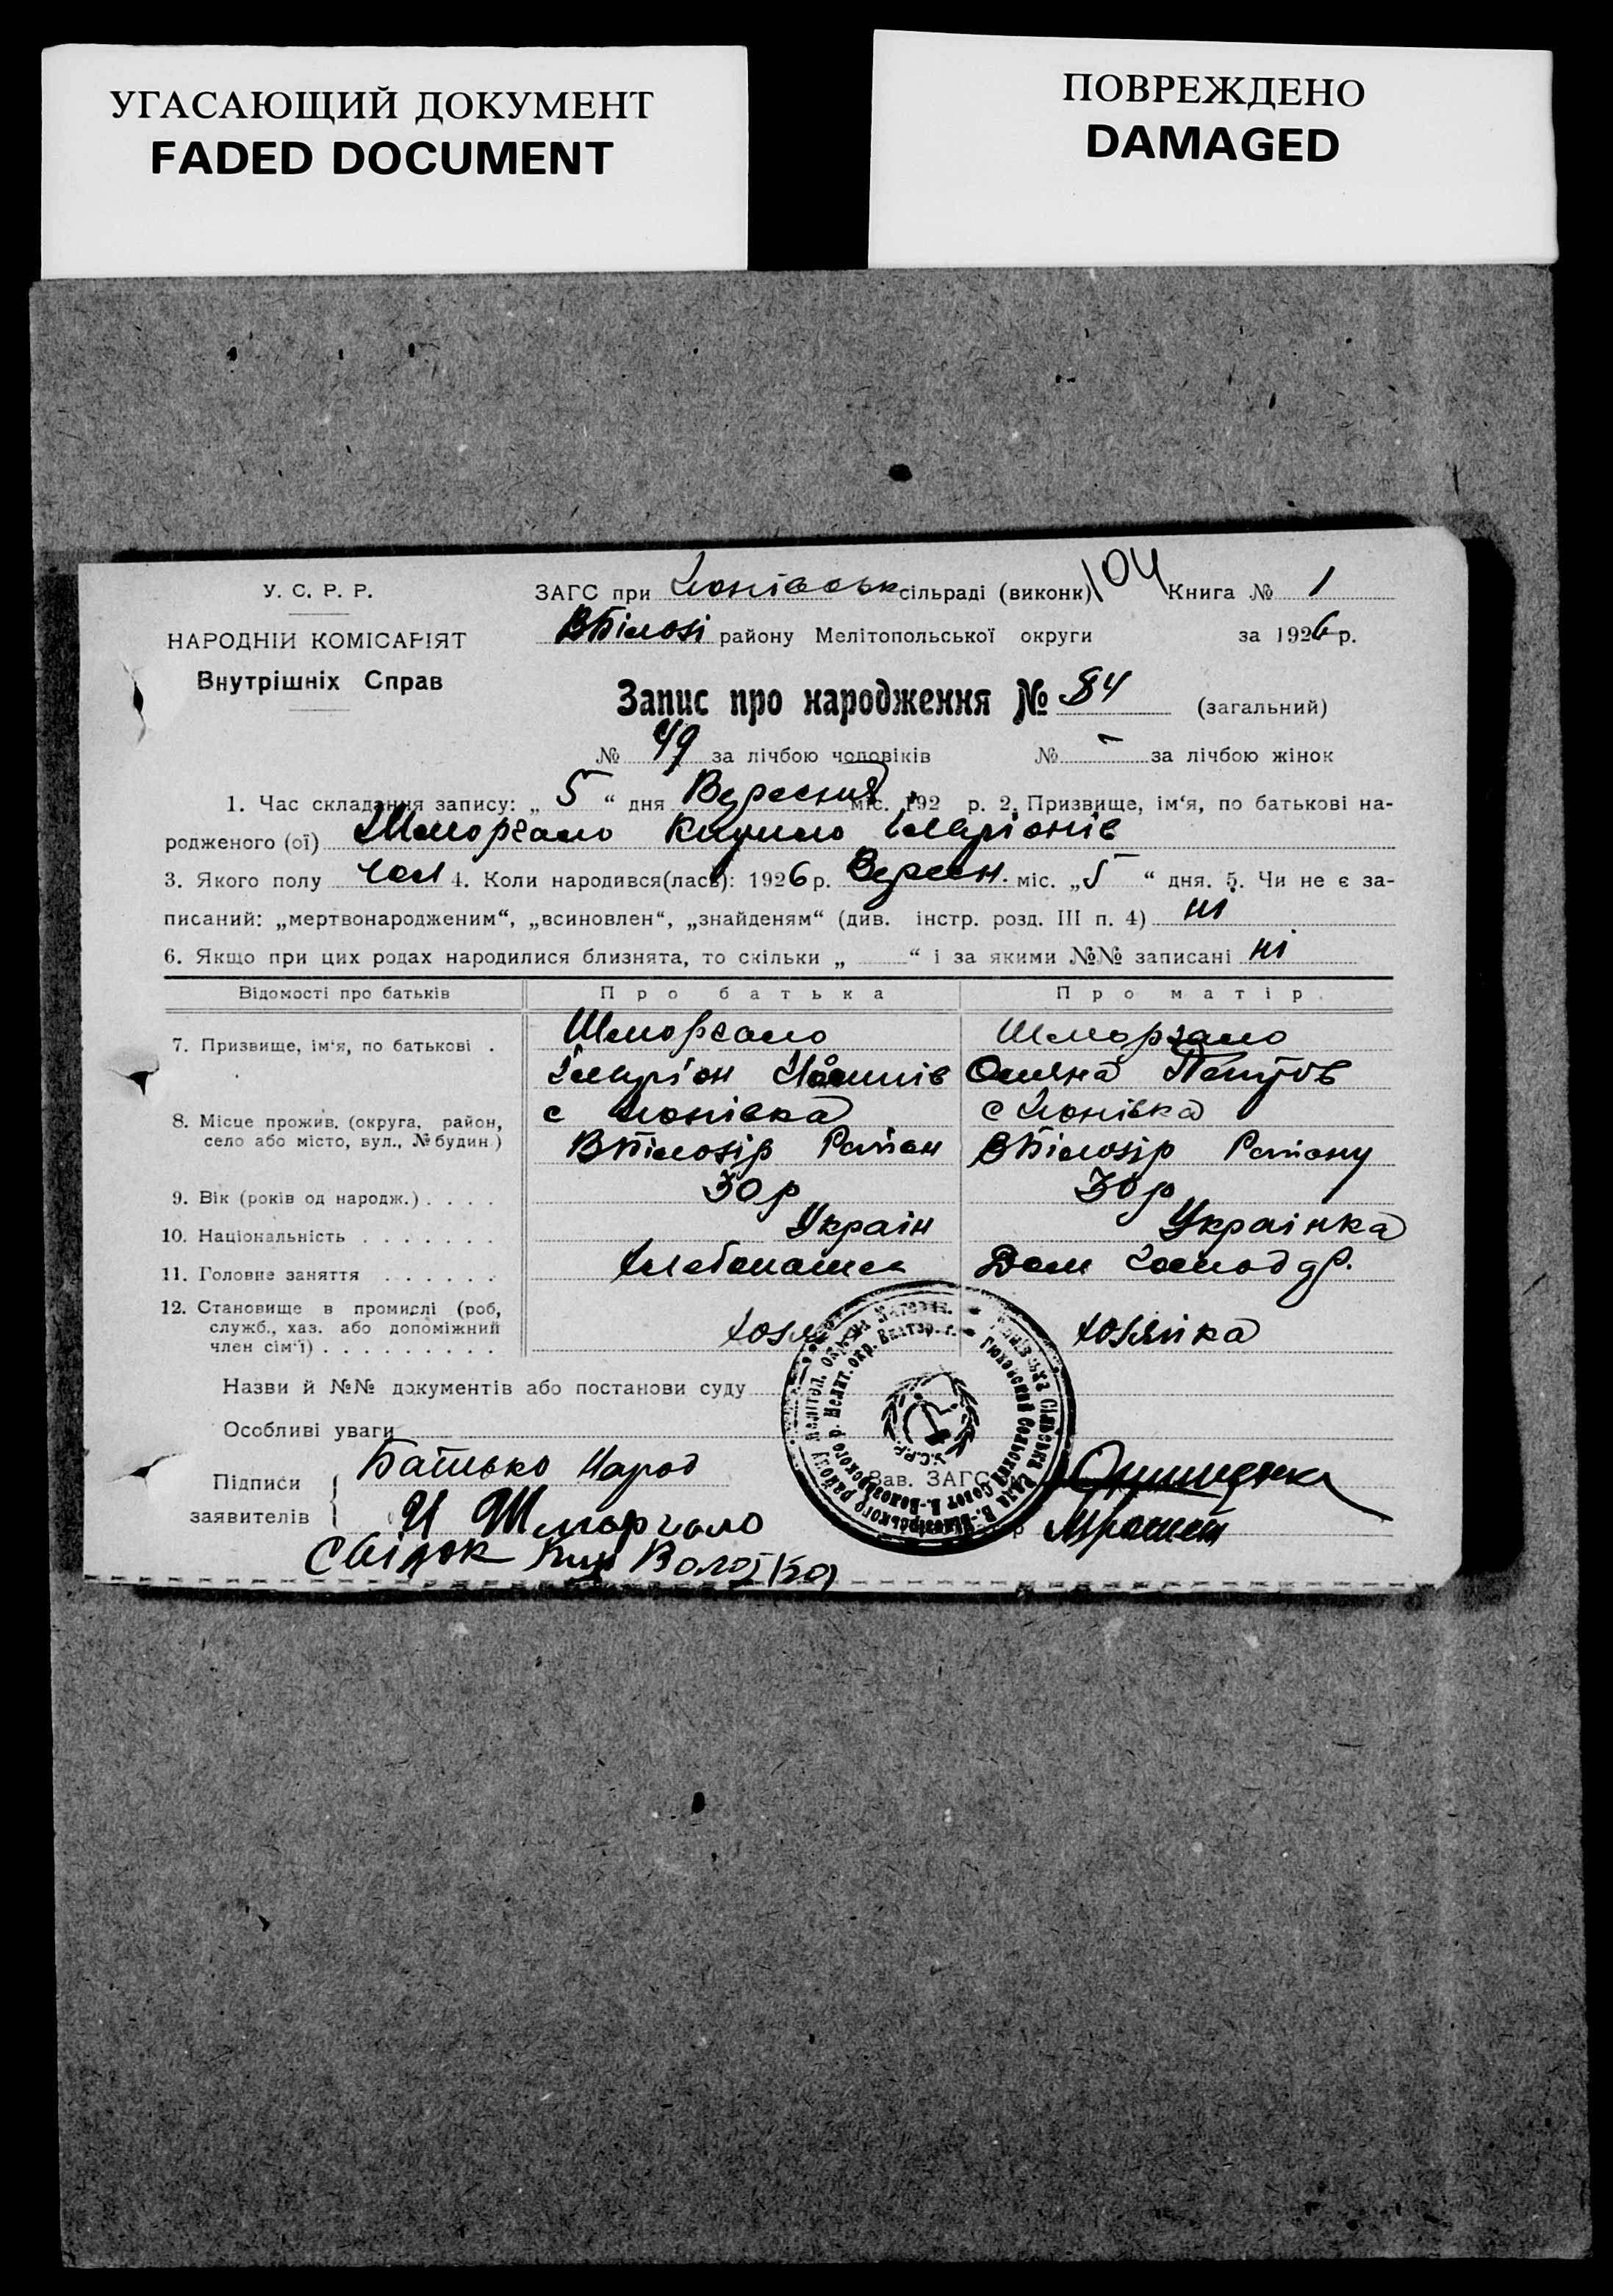 УГАСАЮЩИЙ ДОКУМЕНТ
FADED DOCUMENT
ПОВРЕЖДЕНО
DAMAGED
У. С. Р. Р.
НАРОДНІЙ КОМІСАРІЯТ
Внутрішніх Справ
ЗАГС при сільраді (виконк) 104 Книга № 1
ВБілозі району Мелітопольської округи за 1926 р.
Запис про народження № 84 (загальний)
№ 49 за лічбою чоловіків № - за лічбою жінок
1. Час складання запису: „ 5 “ дня Вересня міс. 192 р. 2. Призвище, ім‘я, по батькові на-
родженого (ої) Шморгало Кирило Іларіонів
3. Якого полу чол 4. Коли народився(лась): 1926 р. Вересн. міс. „5 “ дня. 5. Чи не є за-
писаний: „мертвонародженим“, „всиновлен“, „знайденям“ (див. інстр. розд. III п. 4) ні
6. Якщо при цих родах народилися близнята, то скільки „ “ і за якими №№ записані ні
Відомості про батьків Про батька Про матір.
7. Призвище, ім‘я, по батькові . Шморгало Шморгало
Іларіон Оляна Петров
8. Місце прожив. (округа, район,
село або місто, вул., № будин.)
ВБілозір Район ВБілозір Району
9. Вік (років од народж.) . . . . 30 р 30 р
10. Національність . . . . . . . Украін Украінка
11. Головне заняття . . . . . . Хлебопашес Дом Господар.
12. Становище в промислі (роб,
служб., хаз. або допоміжний
член сім‘ї) . . . . . . . . . хозяін хозяйка
Назви й №№ документів або постанови суду
Особливі уваги
Підписи
заявителів
Батько Народ
И Шморгало
Свідок
Зав. ЗАГС